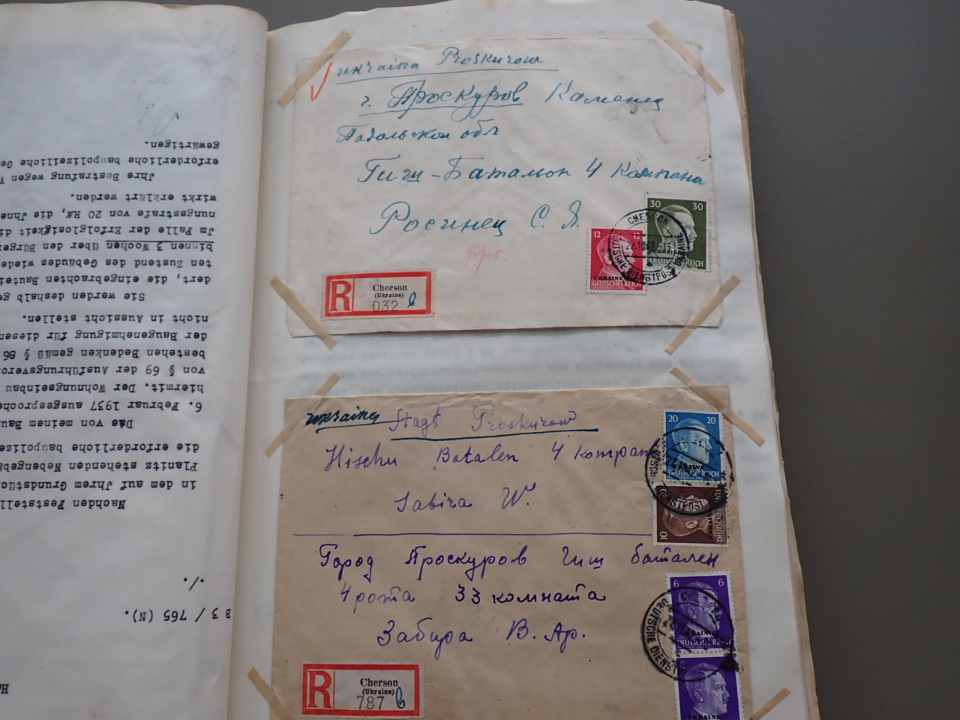 B 3 / 765 (N).
./.
Nachdem Feststell
in dem auf Ihrem Grundstück
Planitz stehenden Nebengebä
die erforderliche baupolize
Die von meinem Bau
6. Februar 1937 ausgesproche
hiermit. Der Wohnungseinbau
von § 69 der Ausführungsveror
bestehen Bedenken gemäß § 86
der Baugenehmigung für diesen
nicht in Aussicht stellen.
Sie werden deshalb ge
dert, die eingebrachten Bautei
ten Zustand des Gebäudes wiede
binnen 3 Wochen über den Bürg
Im Falle der Erfolglosigkeit d
nungsstrafe von 20 RM, die Ihne
wirkt erklärt werden.
Ihre Bestrafung wegen
erforderliche baupolizeiliche Ge
gewärtigen.
Ukraina Proskurow
г. Проскуров Каменец
Падольской обл
Гигш-Баталион 4 Кампана
Рогинец С. Я.
30
12
UKRAINE
DEUTSCHES REICH
CHERSON
DEUTSCHE DIENSTPOST UKRAINE
R Cherson
(Ukraine)
032 b
Ukraina Stagt Proskurow
Hischu Batalen 4 Kompan
Sabira W.
Город Проскуров Гигш батален
4 рота 33 комната
Забира В. Др.
20
UKRAINE
10
6
UKRAINE
DEUTSCHES REICH
DEUTSCHE DIENST
R Cherson
(Ukraine)
787 b